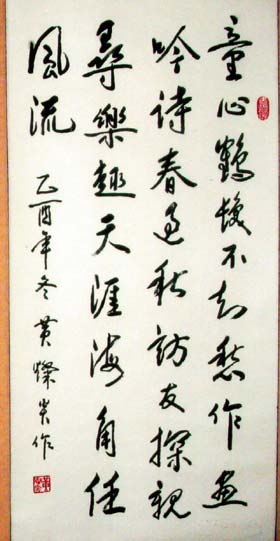 童心鶴髮不知愁作畫
吟诗春秋訪友探親
尋樂趣天涯海角任
風流
乙酉年冬黄燦炎作